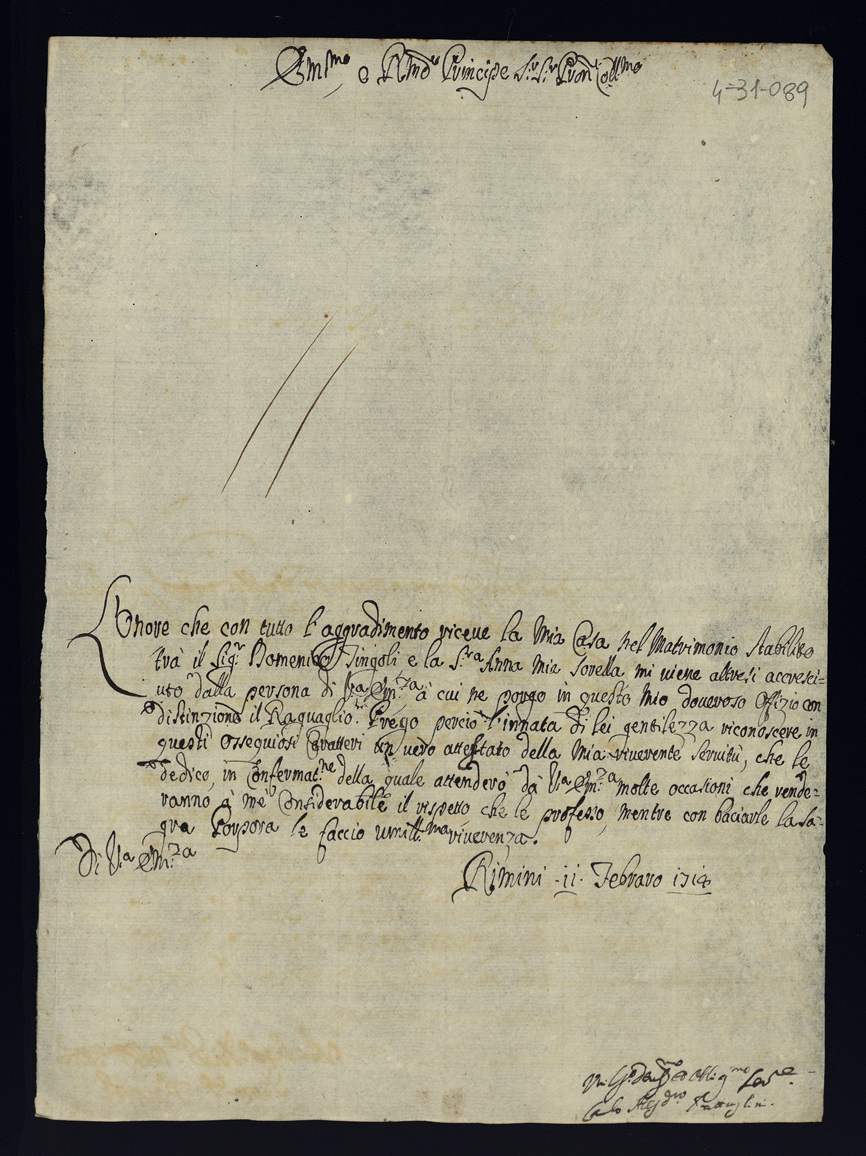 Em.mo e R.mo Principe Sig.r Sig.r P.ron Coll.mo
4-31-089
L'honore che con tutto l'aggradimento riceue la mia Casa nel Matrimonio stabilito
trà il Sig.r Domenico Tingoli e la Sig.ra Anna mia sorella mi uiene altresi accresci-
uto dalla persona di V.a Em.za à cui ne porgo in questo mio doueroso Offizio con
distinzione il Raguaglio. Prego perciò l'innata di lei gentilezza riconoscere in
questi ossequiosi Caratteri un uero attestato della mia riuerente seruitù, che le
dedico, in Confermat.ne della quale attenderò dà V.a Em.za molte occasioni che rende-
ranno à mè Considerabile il rispetto che le professo, mentre con baciarle la Sa-
gra Porpora le faccio umill.ma riuerenza.
Di V.a Em.za
Rimini 11 Febraro 1718
Carlo